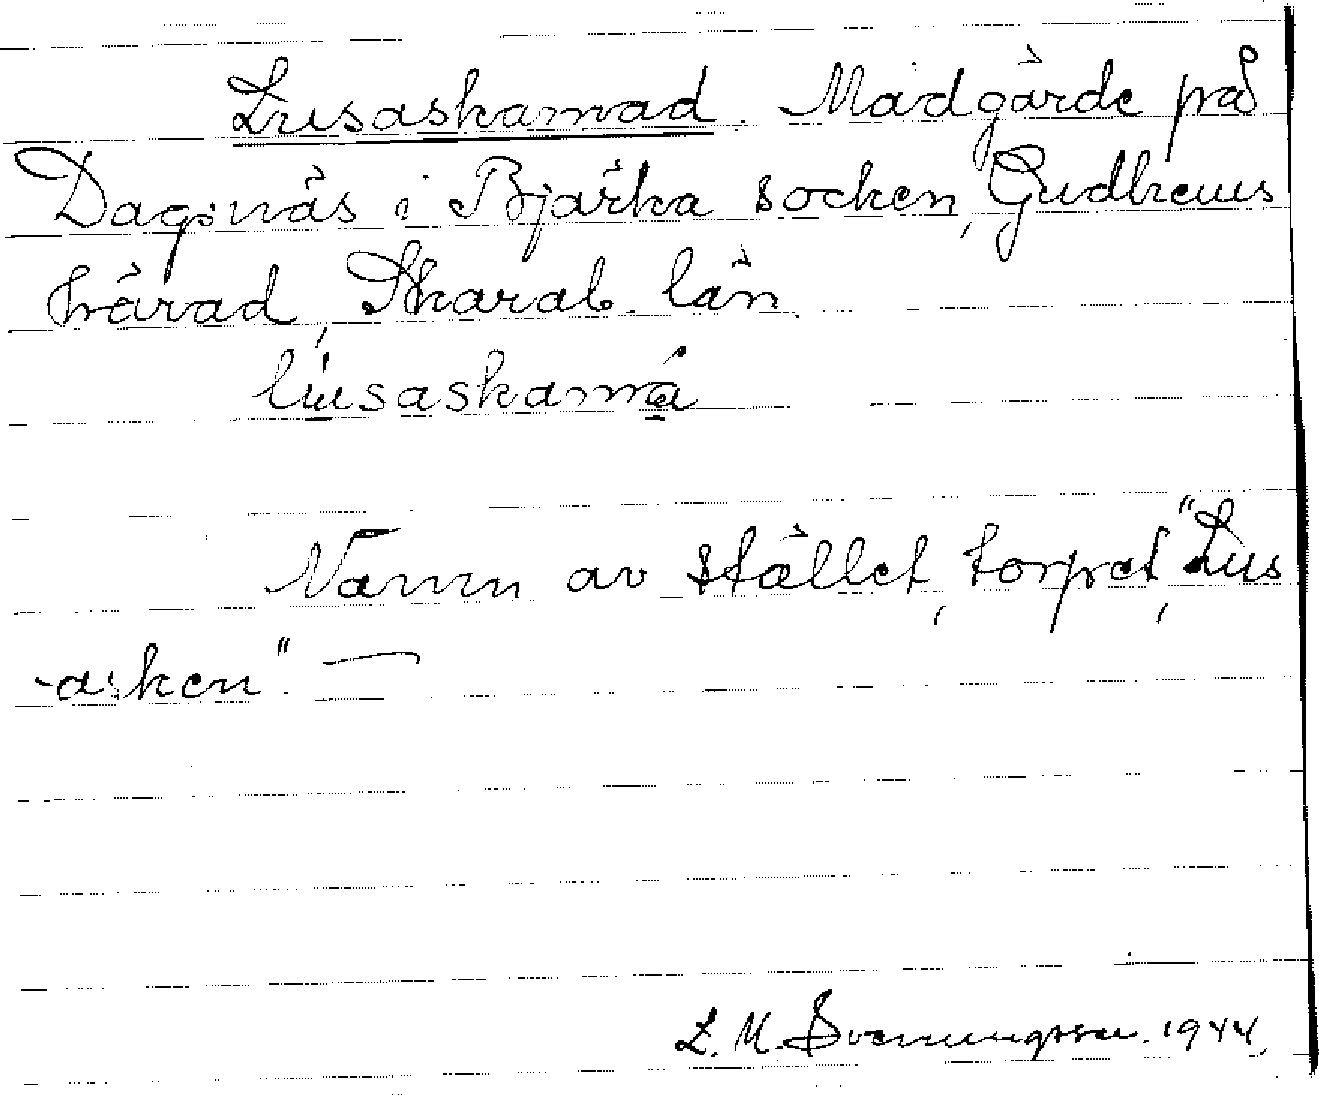 Lusaskamad. Madgärde på
Dagsnäs i Bjärka socken, Gudhems
härad, Skarab. län.
lúsaskamá
Namn av stället, torpet, "Lus
-asken". —
L. M. Svenungsson. 1944.